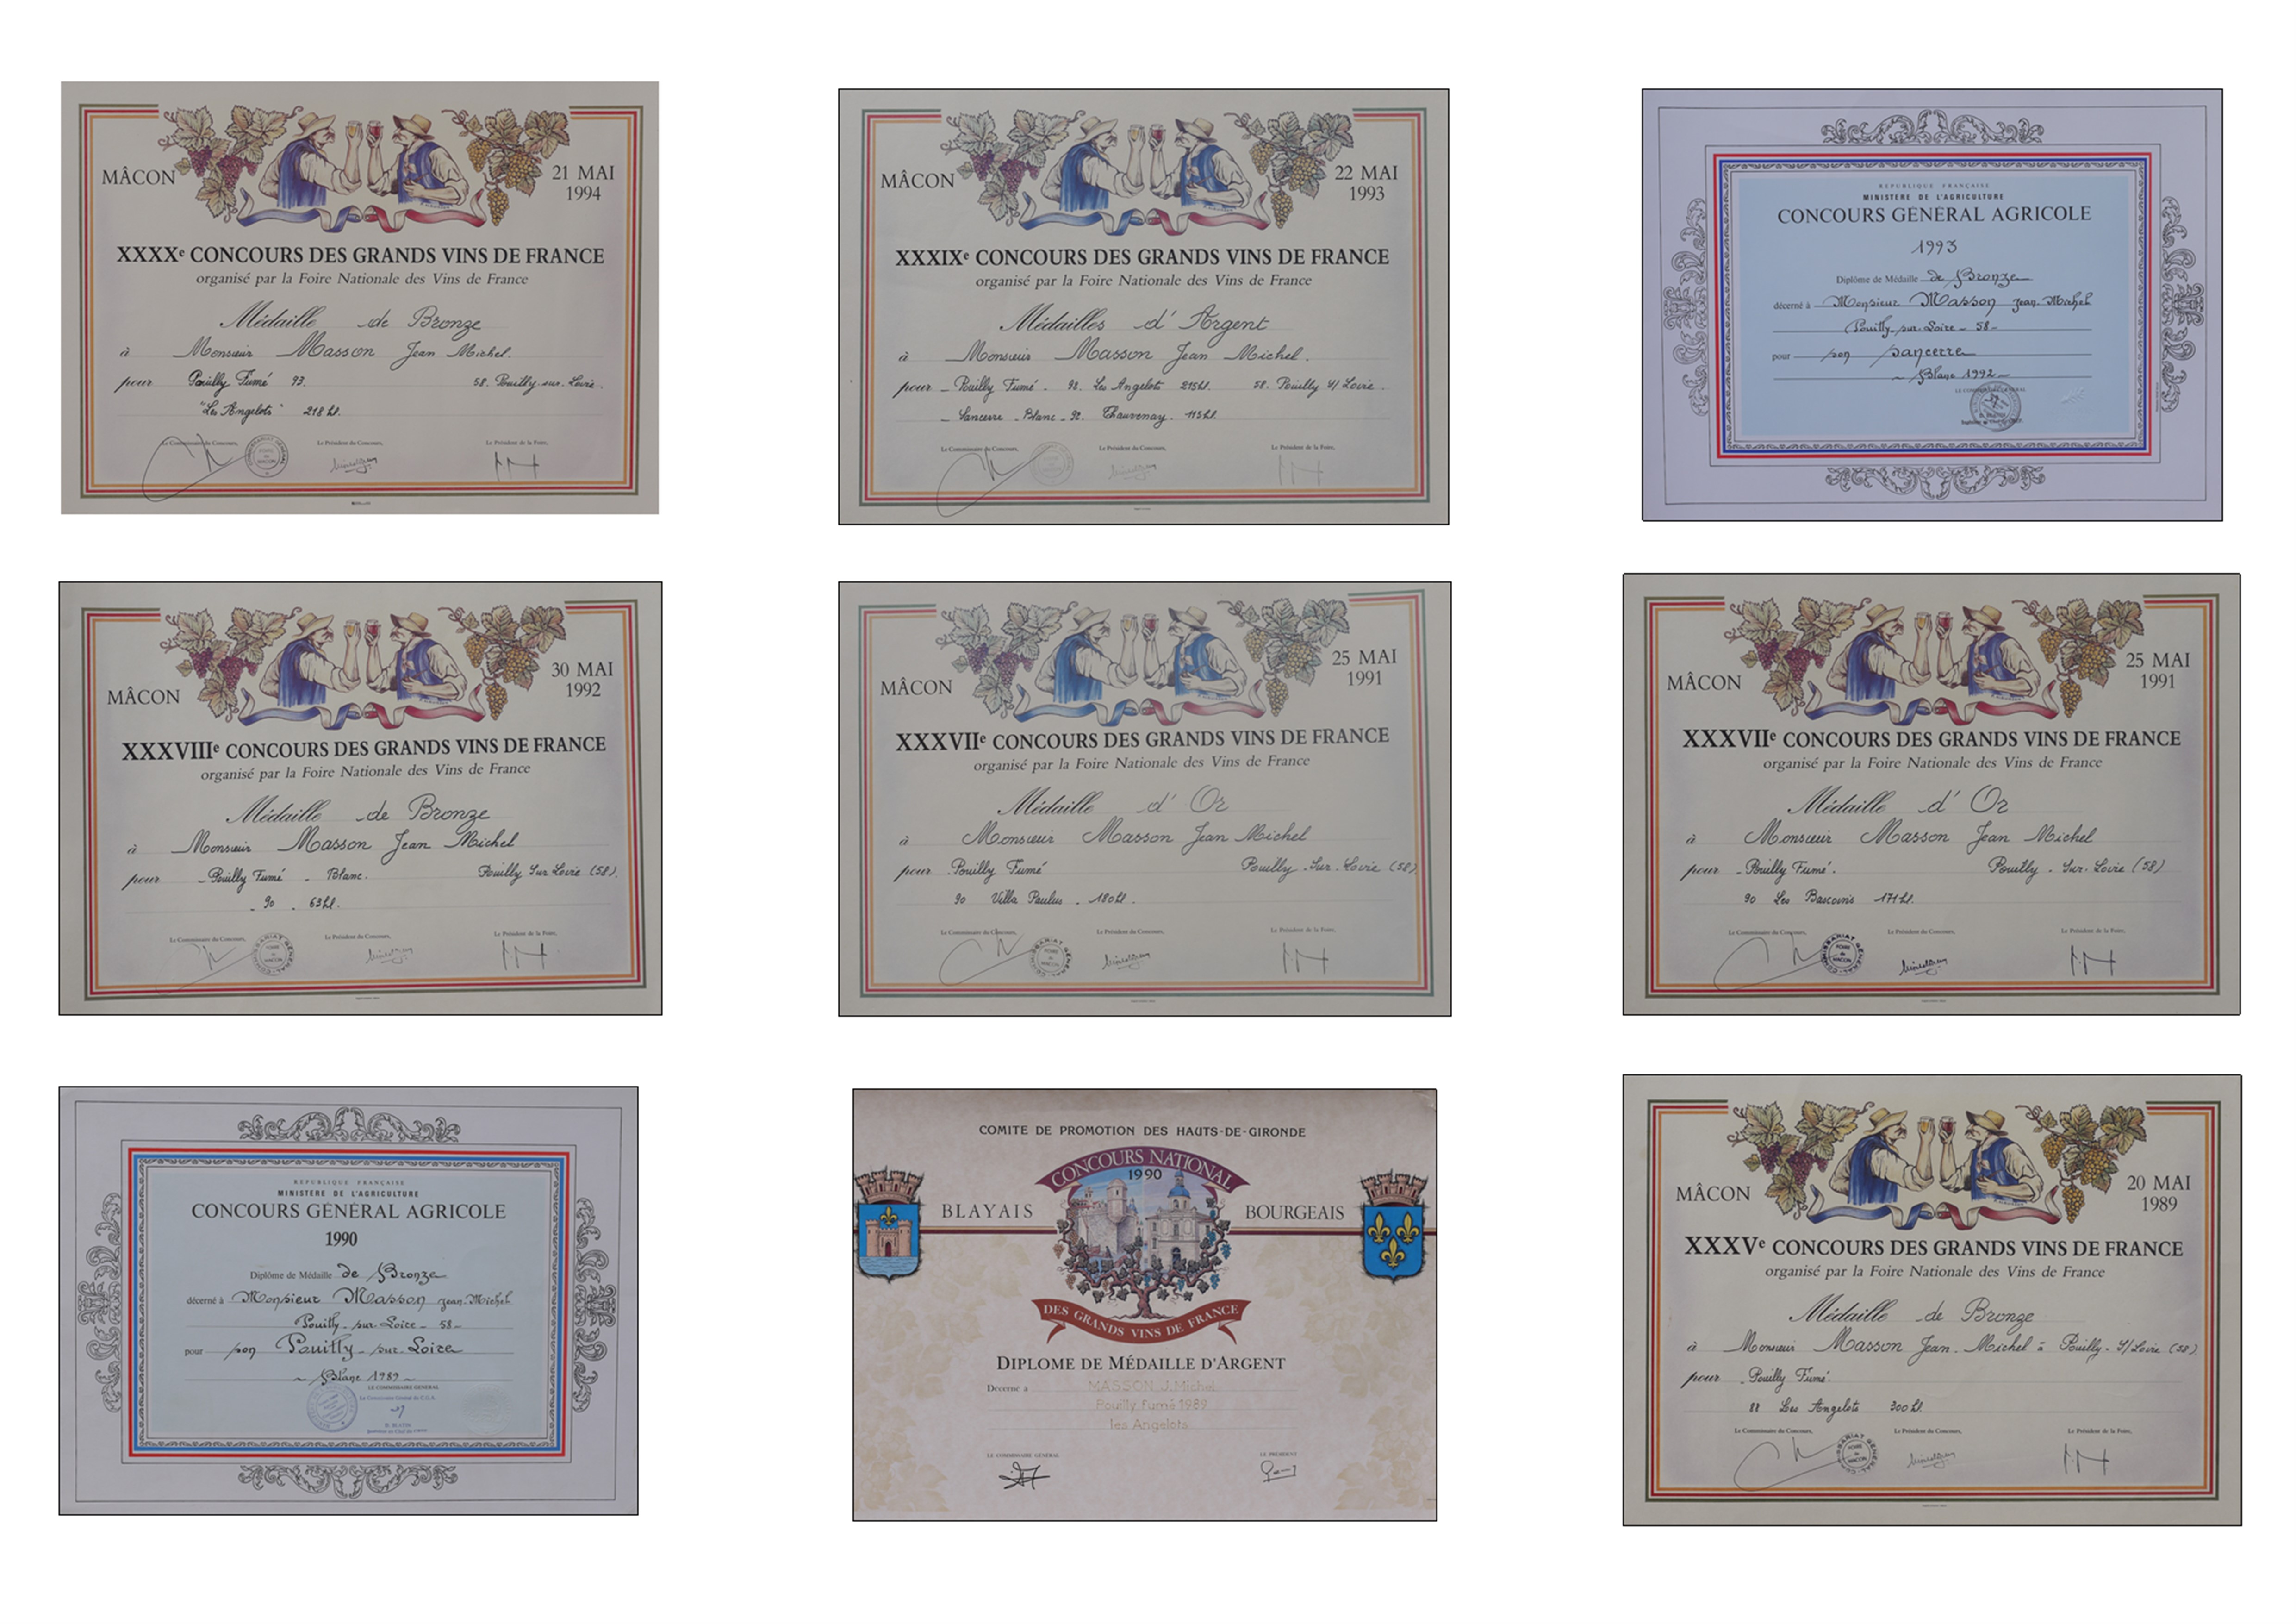 MÂCON
21 MAI
1994
XXXXe CONCOURS DES GRANDS VINS DE FRANCE
organisé par la Foire Nationale des Vins de France
Médaille de Bronze
à Monsieur Masson Jean Michel.
pour Pouilly Fumé 93. 58. Pouilly-sur-Loire.
"Les Angelots" 218 hl.
Le Commissaire du Concours, Le Président du Concours, Le Président de la Foire,
MÂCON
22 MAI
1993
XXXIXe CONCOURS DES GRANDS VINS DE FRANCE
organisé par la Foire Nationale des Vins de France
Médailles d'Argent
à Monsieur Masson Jean Michel.
pour - Pouilly Fumé. 92. Les Angelots 215hl. 58. Pouilly S/ Loire.
- Sancerre - Blanc - 92. Thauvenay. 115hl.
Le Commissaire du Concours, Le Président du Concours, Le Président de la Foire,
REPUBLIQUE FRANÇAISE
MINISTERE DE L'AGRICULTURE
CONCOURS GÉNÉRAL AGRICOLE
1993
Diplôme de Médaille de Bronze
décerné à Monsieur Masson Jean-Michel
Pouilly-sur-Loire - 58 -
pour son Sancerre
- Blanc 1992 -
LE COMMISSAIRE GENERAL
MÂCON
30 MAI
1992
XXXVIIIe CONCOURS DES GRANDS VINS DE FRANCE
organisé par la Foire Nationale des Vins de France
Médaille de Bronze
à Monsieur Masson Jean Michel
pour - Pouilly Fumé - Blanc. Pouilly Sur Loire (58).
- 90 - 63hl.
Le Commissaire du Concours, Le Président du Concours, Le Président de la Foire,
MÂCON
25 MAI
1991
XXXVIIe CONCOURS DES GRANDS VINS DE FRANCE
organisé par la Foire Nationale des Vins de France
Médaille d'Or
à Monsieur Masson Jean Michel
pour - Pouilly Fumé Pouilly-Sur-Loire (58)
90 Villa Paulus - 180hl.
Le Commissaire du Concours, Le Président du Concours, Le Président de la Foire,
MÂCON
25 MAI
1991
XXXVIIe CONCOURS DES GRANDS VINS DE FRANCE
organisé par la Foire Nationale des Vins de France
Médaille d'Or
à Monsieur Masson Jean Michel
pour - Pouilly Fumé. Pouilly-Sur-Loire (58)
90 Les Bascoins 171hl.
Le Commissaire du Concours, Le Président du Concours, Le Président de la Foire,
REPUBLIQUE FRANÇAISE
MINISTERE DE L'AGRICULTURE
CONCOURS GÉNÉRAL AGRICOLE
1990
Diplôme de Médaille de Bronze
décerné à Monsieur Masson Jean-Michel
Pouilly-sur-Loire - 58 -
pour son Pouilly-sur-Loire
- Blanc 1989 -
LE COMMISSAIRE GENERAL
COMITE DE PROMOTION DES HAUTS-DE-GIRONDE
CONCOURS NATIONAL
1990
BLAYAIS BOURGEAIS
DES GRANDS VINS DE FRANCE
DIPLOME DE MÉDAILLE D'ARGENT
Décerné à MASSON J.Michel
Pouilly fumé 1989
les Angelots
LE COMMISSAIRE GÉNÉRAL LE PRÉSIDENT
MÂCON
20 MAI
1989
XXXVe CONCOURS DES GRANDS VINS DE FRANCE
organisé par la Foire Nationale des Vins de France
Médaille de Bronze
à Monsieur Masson Jean-Michel à Pouilly-S/Loire (58).
pour - Pouilly Fumé.
88 Les Angelots 300hl.
Le Commissaire du Concours, Le Président du Concours, Le Président de la Foire,